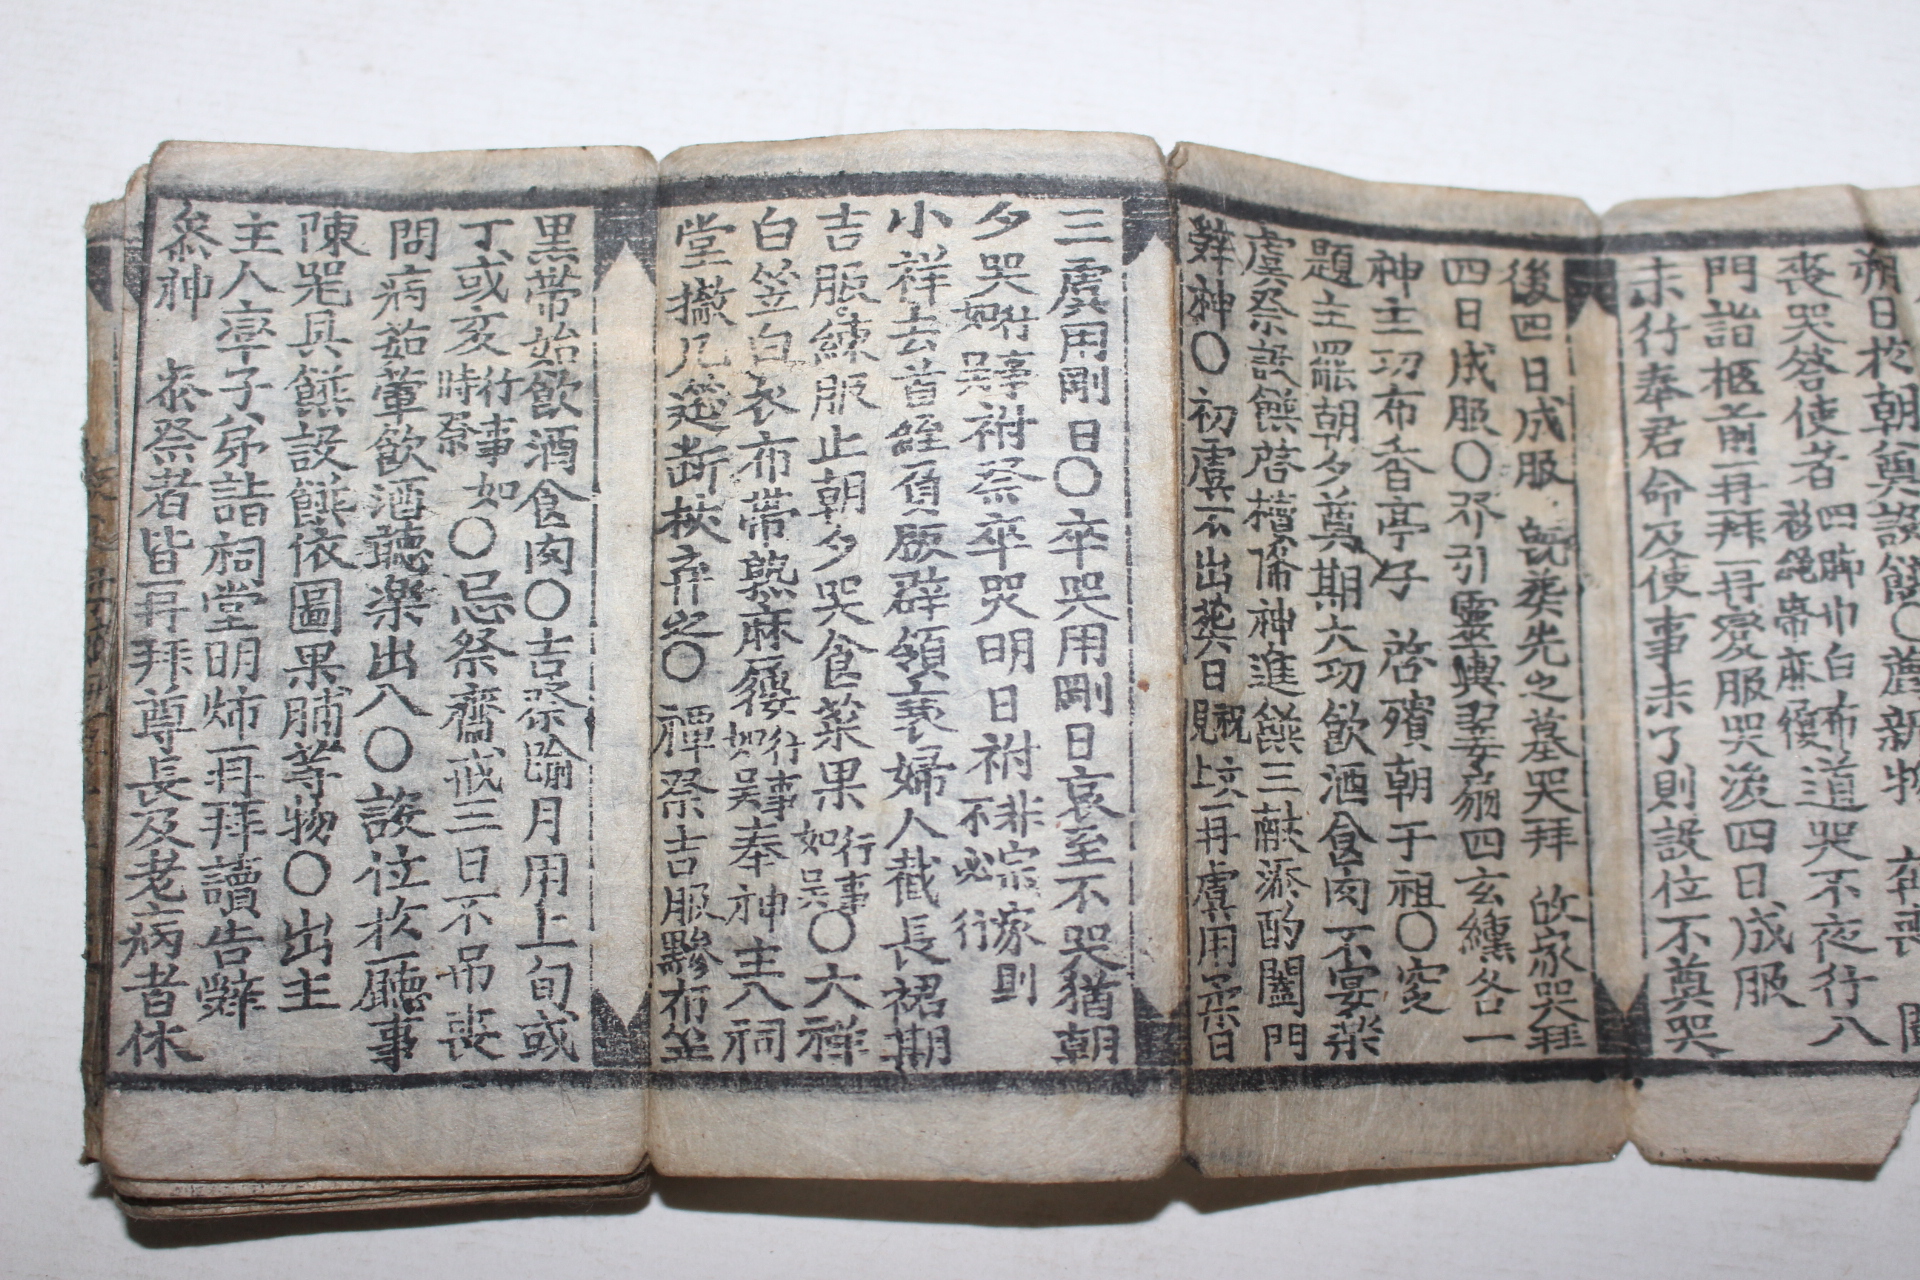 朔日於朝奠設饌○薦新物
喪哭答使者四脚巾白布衫繩帶麻屨道哭不夜行入
門詣柩前再拜再變服哭後四日成服
未行奉君命及使事未了則設位不奠哭
後四日成服 旣葬先之墓哭拜 皈家哭拜
四日成服○發引靈輿翣扇四玄纁各一
神主功布香亭子 啓殯朝于祖○窆
題主罷朝夕奠期大功飮酒食肉不宴樂
虞祭設饌啓櫝降神進饌三獻添酌闔門
辭神○初虞不出葬日 再虞用柔日
三虞用剛日○卒哭用剛日哀至不哭猶朝
夕哭行事如吳祔祭卒哭明日祔非宗家則不必行
小祥去首絰負版辟領衰婦人截長裙期
吉服練服止朝夕哭食菜果行事如吳○大祥
白笠白衣布帶熟麻屨行事如吳奉神主入祠
堂撤几筵斷杖弃之○ 禫祭吉服黲布笠
黑帶始飮酒食肉○吉祭踰月用上旬或
丁或亥行事如時祭○忌祭齋戒三日不吊喪
問病茹葷飮酒聽樂出入○設位於廳事
陳器具饌設饌依圖果脯等物○出主
主人率子弟詣祠堂明燭再拜讀告辭
叅神 叅祭者皆再拜尊長及老病者休